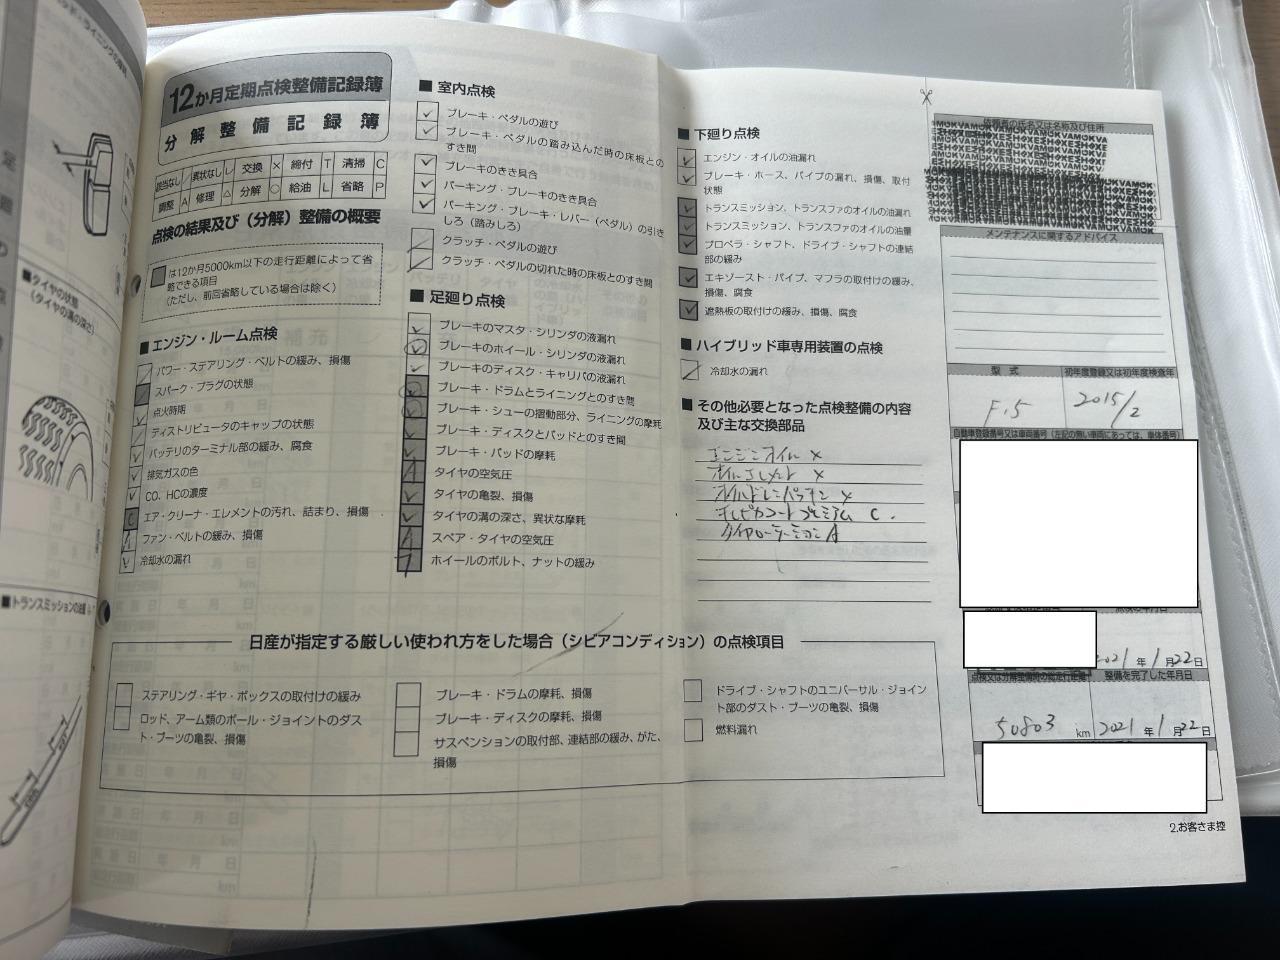 12か月定期点検整備記録簿
分解整備記録簿
該当なし / 異状なし レ 交換 × 締付 T 清掃 C
調整 A 修理 △ 分解 ○ 給油 L 省略 P
点検の結果及び（分解）整備の概要
は12か月5000km以下の走行距離によって省
略できる項目
（ただし、前回省略している場合は除く）
■エンジン・ルーム点検
パワー・ステアリング・ベルトの緩み、損傷
スパーク・プラグの状態
点火時期
ディストリビュータのキャップの状態
バッテリのターミナル部の緩み、腐食
排気ガスの色
CO、HCの濃度
エア・クリーナ・エレメントの汚れ、詰まり、損傷
ファン・ベルトの緩み、損傷
冷却水の漏れ
■室内点検
ブレーキ・ペダルの遊び
ブレーキ・ペダルの踏み込んだ時の床板との
すき間
ブレーキのきき具合
パーキング・ブレーキのきき具合
パーキング・ブレーキ・レバー（ペダル）の引き
しろ（踏みしろ）
クラッチ・ペダルの遊び
クラッチ・ペダルの切れた時の床板とのすき間
■足廻り点検
ブレーキのマスタ・シリンダの液漏れ
ブレーキのホイール・シリンダの液漏れ
ブレーキのディスク・キャリパの液漏れ
ブレーキ・ドラムとライニングとのすき間
ブレーキ・シューの摺動部分、ライニングの摩耗
ブレーキ・ディスクとパッドとのすき間
ブレーキ・パッドの摩耗
タイヤの空気圧
タイヤの亀裂、損傷
タイヤの溝の深さ、異状な摩耗
スペア・タイヤの空気圧
ホイールのボルト、ナットの緩み
■下廻り点検
エンジン・オイルの油漏れ
ブレーキ・ホース、パイプの漏れ、損傷、取付
状態
トランスミッション、トランスファのオイルの油漏れ
トランスミッション、トランスファのオイルの油量
プロペラ・シャフト、ドライブ・シャフトの連結
部の緩み
エキゾースト・パイプ、マフラの取付けの緩み、
損傷、腐食
遮熱板の取付けの緩み、損傷、腐食
■ハイブリッド車専用装置の点検
冷却水の漏れ
■その他必要となった点検整備の内容
及び主な交換部品
エンジンオイル ×
オイルエレメント ×
オイルドレンパッキン ×
プレミアム C.
タイヤローテーション A
依頼者の氏名又は名称及び住所
メンテナンスに関するアドバイス
型式 初年度登録又は初年度検査年
F15 2015/2
自動車登録番号又は車両番号（左記の無い車両にあっては、車体番号）
2021年1月22日
点検又は分解整備時の総走行距離 整備を完了した年月日
50803 km 2021年1月22日
日産が指定する厳しい使われ方をした場合（シビアコンディション）の点検項目
ステアリング・ギヤ・ボックスの取付けの緩み
ロッド、アーム類のボール・ジョイントのダス
ト・ブーツの亀裂、損傷
ブレーキ・ドラムの摩耗、損傷
ブレーキ・ディスクの摩耗、損傷
サスペンションの取付部、連結部の緩み、がた、
損傷
ドライブ・シャフトのユニバーサル・ジョイン
ト部のダスト・ブーツの亀裂、損傷
燃料漏れ
2.お客さま控
■タイヤの状態
（タイヤの溝の深さ）